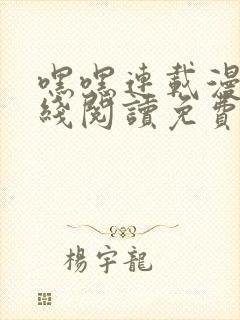 嘿嘿連載漫
綫閱讀免費
楊宇龍